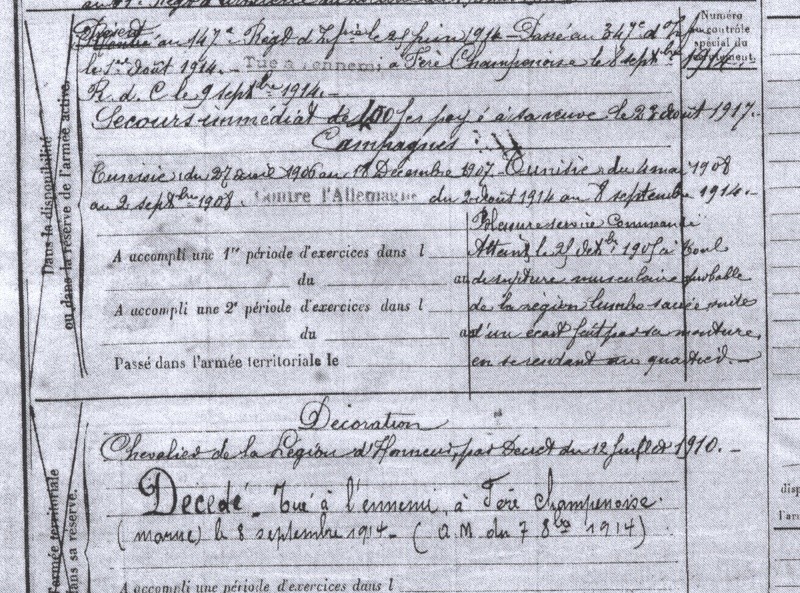 Numéro
au contrôle
spécial du
recrutement.
au 147e Régt d'Infie le 25 juin 1914 - Passé au 347e d'Infie
le 1er août 1914. - Tué à l'ennemi à Fère Champenoise le 8 septbre 1914.
R. d. C le 9 septbre 1914.
Secours immédiat de 100 fcs payé à sa veuve le 23 août 1917.
Campagnes :
Tunisie du 27 avril 1906 au 19 Décembre 1907. Tunisie du 4 mai 1908
au 2 septbre 1908. Contre l'Allemagne du 2 août 1914 au 8 septembre 1914.
Dans la disponibilité
ou dans la réserve de l'armée active.
Blessure service commandé
Atteint le 25 octbre 1905 à Toul
de rupture musculaire
de la région lombo-sacrée suite
d'un écart fait par sa monture
en se rendant au quartier.
A accompli une 1re période d'exercices dans l
du au
A accompli une 2e période d'exercices dans l
du au
Passé dans l'armée territoriale le
Décoration
Chevalier de la Légion d'Honneur, par Décret du 12 Juillet 1910. -
Décédé - Tué à l'ennemi, à Fère Champenoise
(marne) le 8 septembre 1914 - (A.M. du 7 8bre 1914)
l'armée territoriale
dans sa réserve.
A accompli une période d'exercices dans l